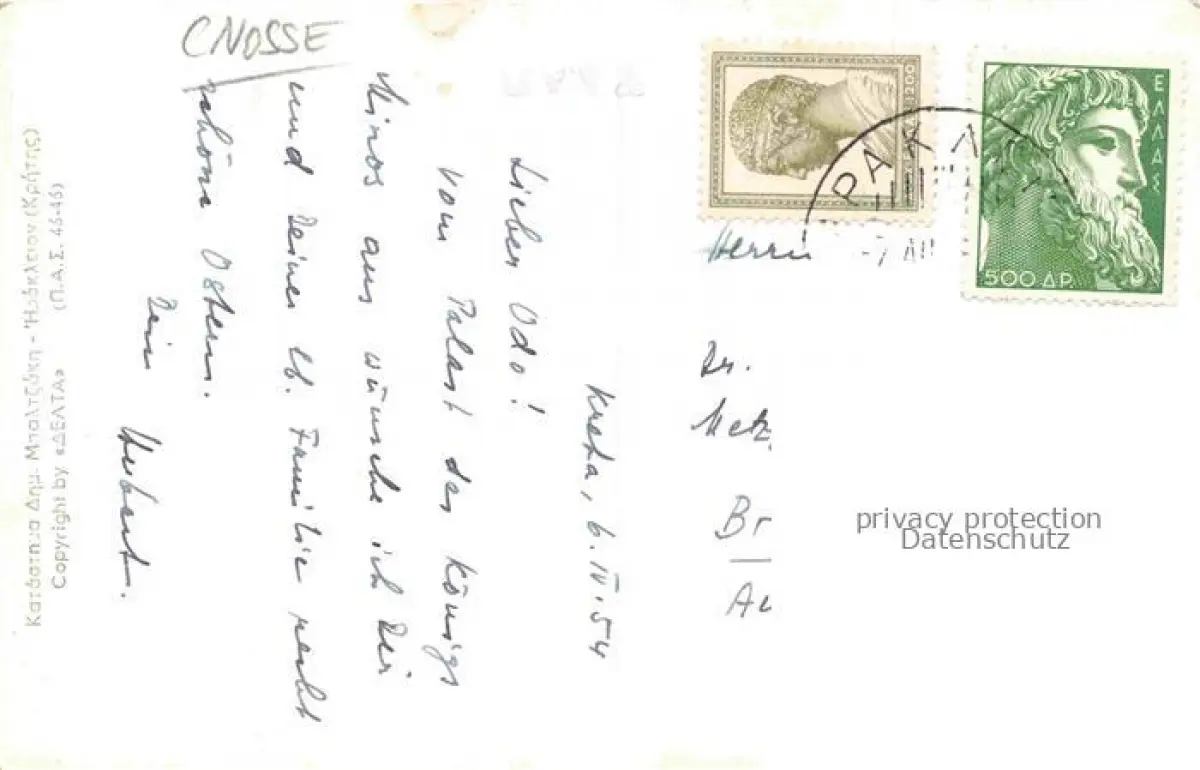 CNOSSE
Kreta, 6.IV.54
Lieber Odo!
Vom Palast des Königs
Minos aus wünsche ich Dir
und Deiner lb. Familie recht
schöne Ostern.
Dein
Hubert.
Κατάστημα Δημ. Μπαλτζάκη - Ἡράκλειον (Κρήτης)
Copyright by «ΔΕΛΤΑ» (Π.Α.Σ. 46-46)
1200
ΕΛΛΑΣ
500 ΔΡ.
ΡΑΚΛ
-7 ΑΠ
Herrn
Dr.
Metz
Br
Au
privacy protection
Datenschutz